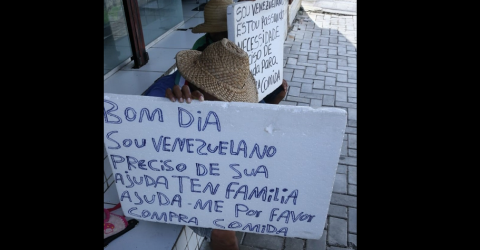 SOU VENEZUELANO
ESTOU PASSANDO
NECESSIDADE
PARA
COMIDA
BOM DIA
SOU VENEZUELANO
PRECISO DE SUA
AJUDA TEN FAMILIA
AJUDA-ME POR FAVOR
COMPRA COMIDA